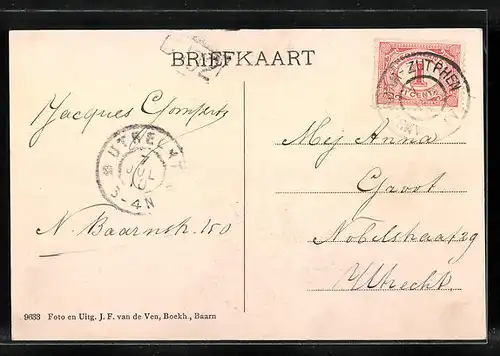 BRIEFKAART
1
ZUTPHEN
Jacques Gompertz
UTRECHT
7
JUL
10
3-4N
N. Baarnstr. 150
Mej Anna
Groot
Nobelstraat 29
Utrecht.
9633 Foto en Uitg. J. F. van de Ven, Boekh., Baarn